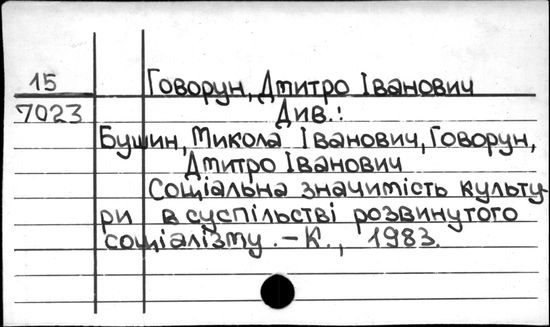 15 Говорун, Дмитро Іванович
7023 Див.:
Бушин, Микола Іванович, Говорун,
Дмитро Іванович
Соціальна значимість культу-
ри в суспільстві розвинутого
соціалізму. – К., 1983.